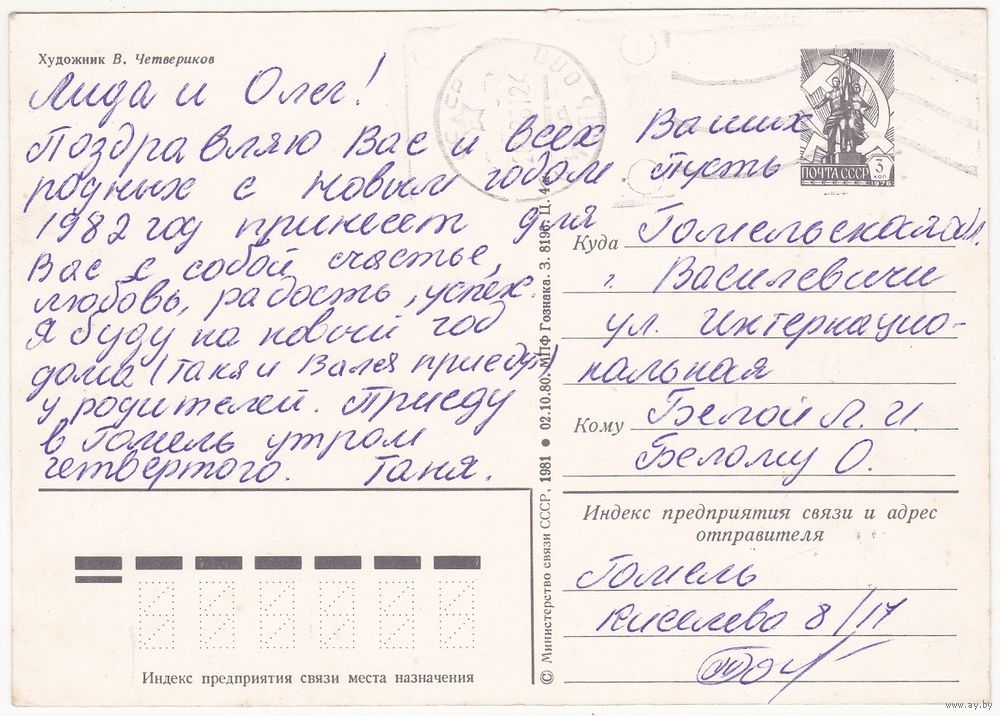 Художник В. Четвериков
Лида и Олег!
Поздравляю Вас и всех Ваших
родных с Новым годом. Пусть
1982 год принесет для
Вас с собой счастье,
любовь, радость, успех.
Я буду на новый год
дома (Таня и Валя приедут)
у родителей. Приеду
в Гомель утром
четвертого. Таня.
Индекс предприятия связи места назначения
© Министерство связи СССР, 1981 ● 02.10.80. МПФ Гознака. З. 8198. Ц. 4 к.
ПОЧТА СССР 3 коп
1976
Куда Гомельская обл.
г. Василевичи
ул. Интернацио-
нальная
Кому Белой Л. И.
Белому О.
Индекс предприятия связи и адрес
отправителя
Гомель
Киселева 8/17
www.ay.by